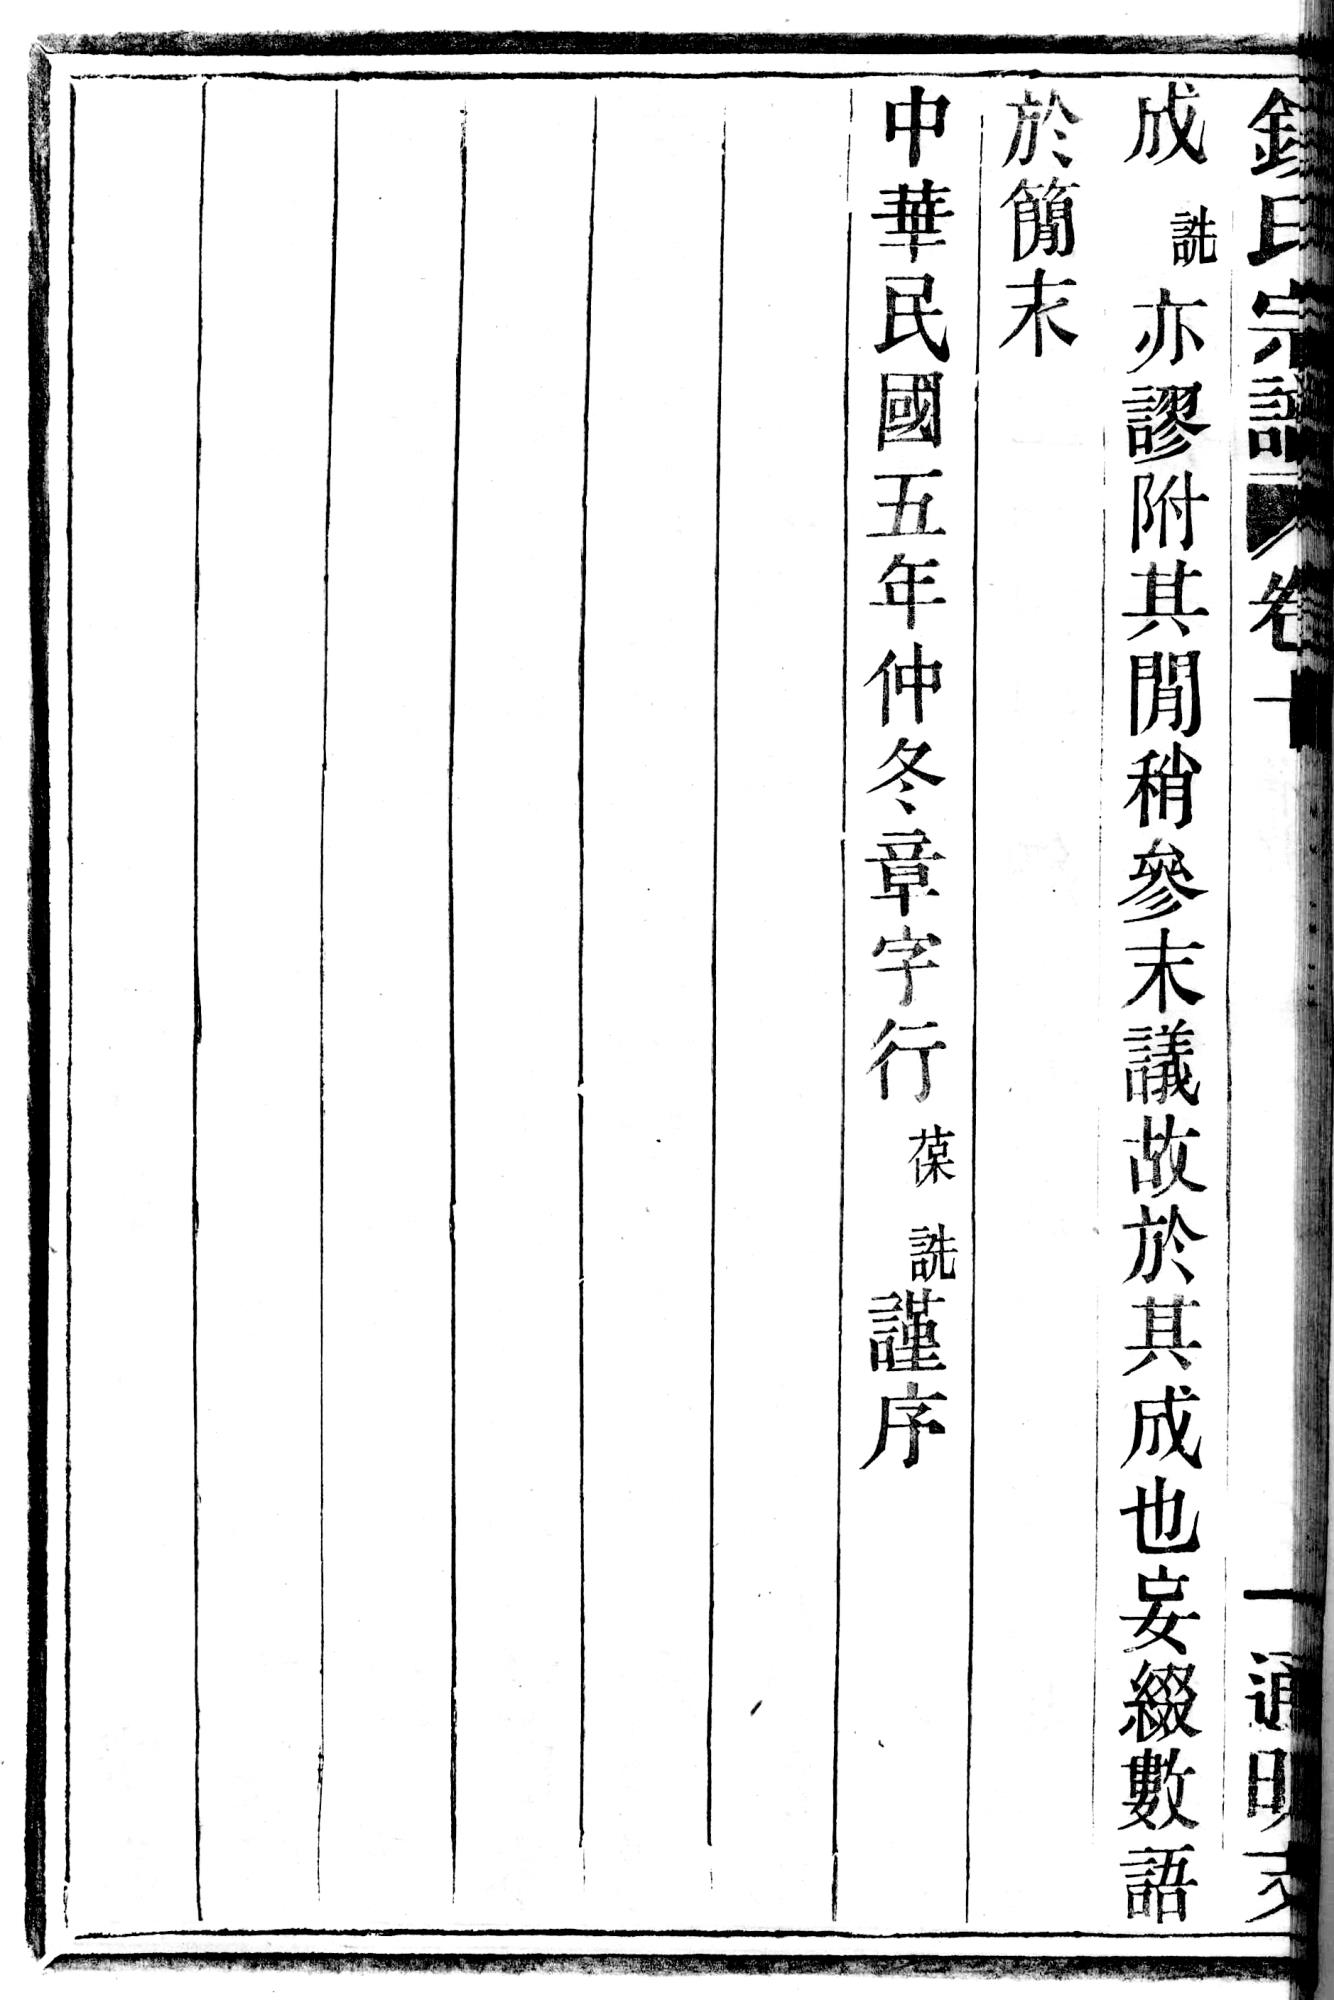 氏宗譜 卷 一 通明支
成詵亦謬附其閒稍參末議故於其成也妄綴數語
於簡末
中華民國五年仲冬章字行葆詵謹序